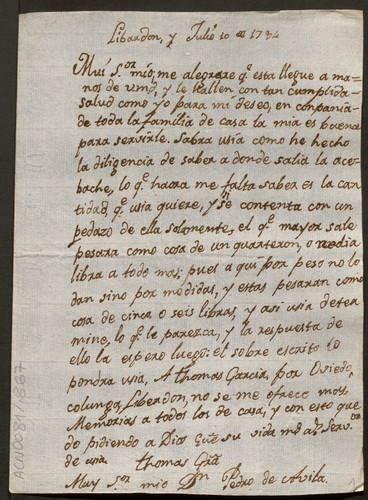 Libardon, y Julio 10 de 1784
Mui S.or mio, me alegrare q.e esta llegue a ma-
nos de vmd, y le hallen con tan cumplida
salud como yo para mi deseo, en conpania
de toda la familia de casa la mia es buena
para servirle. Sabra usia como he hecho
la diligencia de saber a donde salia la ace-
bache, lo q.e haora me falta saber es la can-
tidad q.e usia quiere, y si se contenta con un
pedazo de ella solonente, el q.e mayor sale
pesara como cosa de un quarteron, o media
libra a todo mas; pues aqui por peso no lo
dan sino por medidas, y estas pesaran como
cosa de cinco o seis libras, y asi usia deter
mine, lo q.e le parezca, y la respuesta de
ello la espero luego: el sobre escrito lo
pondra usia, A thomas Garcia, por Oviedo,
colunga, Liberdon, no se me ofrece mas,
Memorias a todos los de casa, y con esto que
do pidiendo a Dios gue su vida m.s a.s Serv.or
de usia thomas Gra
Muy S.or mio D.n Pedro de Avila.
ACN0084/867